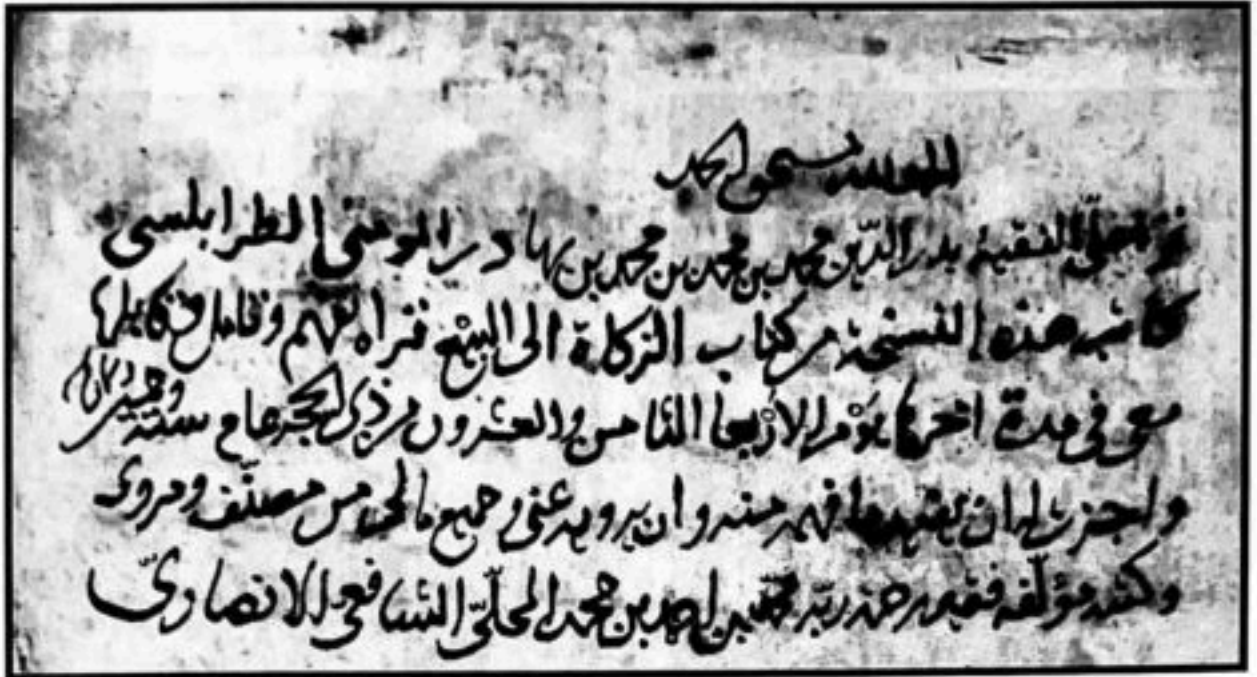 الحمد لله مستحق الحمد
قرأ علي الفقيه بدر الدين محمد بن محمد بن محمد بن بهادر المومني الطرابلسي
كاتب هذه النسخة من كتاب الزكاة الى البيع قراة تفهم وقابل
معي في مدة اخرها يوم الاربعا الثامن والعشرون من ذي الحجة عام ستة وخمسين
واجزت له ان يفيد ما فهمه منه وان يرويه عني وجميع مالي من مصنف ومروي
وكتبه مؤلفه فقير رحمة ربه محمد بن احمد بن محمد المحلي الشافعي الانصاري